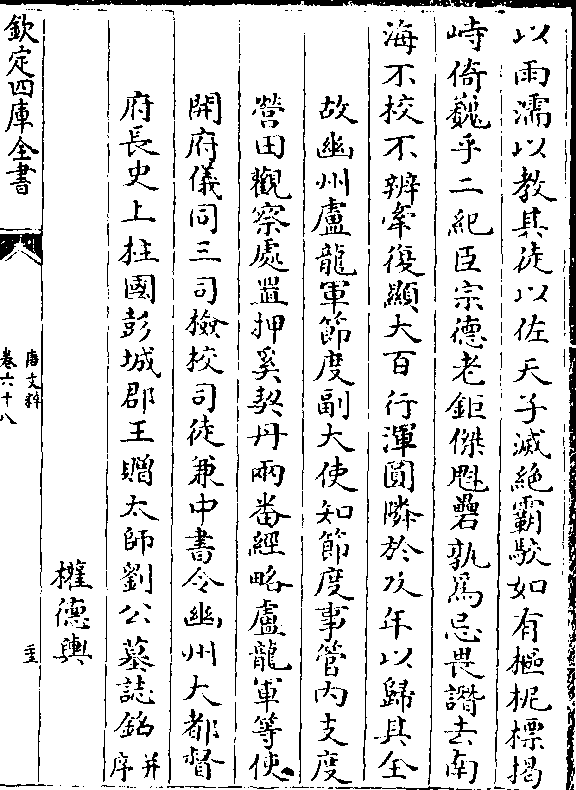 以雨濡以教其徒以佐天子滅絶霸駮如有樞柅標揭
峙倚巍乎二紀臣宗德老鉅傑魁礨孰為忌畏譖去南
海不校不辨牽復顯大百行渾圓隣於及年以歸其全
故幽州盧龍軍節度副大使知節度事管内支度
營田觀察處置押奚契丹兩番經略盧龍軍等使
開府儀同三司檢校司徒兼中書令幽州大都督
府長史上柱國彭城郡王贈太師劉公墓誌銘并序
權德輿
欽定四庫全書
唐文粹
卷六十八